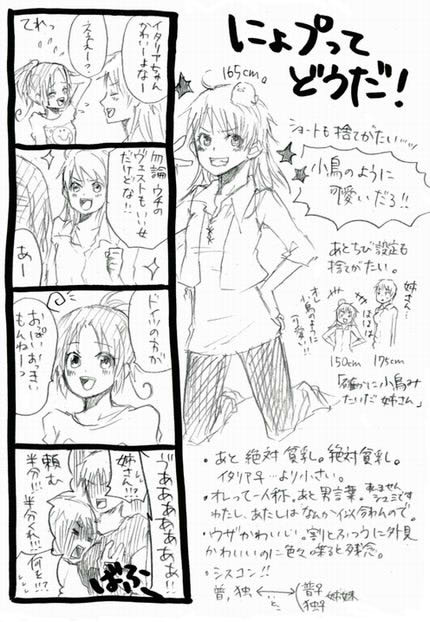 にょプって
どうだ!
165cm。
ショートも捨てがたい……
小鳥のように
可愛いだろ!!
あとちび設定も
捨てがたい。
姉さん!
ほほほ
オレ
小鳥のように
可愛い!!
150cm 175cm
「確かに小鳥み
たいだ姉さん」
・あと絶対貧乳。絶対貧乳。
イタリア子…より小さい。
・オレって一人称。あと男言葉。
わたし、あたしはなんか似合わんので。
・ウザかわいい。割とふつうに外見
かわいいのに色々喋ると残念。
・シスコン!!
普,独 ←…と…→ 普子 独子 姉妹
イタリアちゃん
かわいーよなー
ええー?
てれっ
勿論ウチの
ヴェストもいい女
だけどな!
あー
ドイツの方が
おっぱいおっきい
もんねーっ
ゔあああああぁ!!
姉さん!!
頼む
半分!!半分くれ!!
何を!?
ばふっ